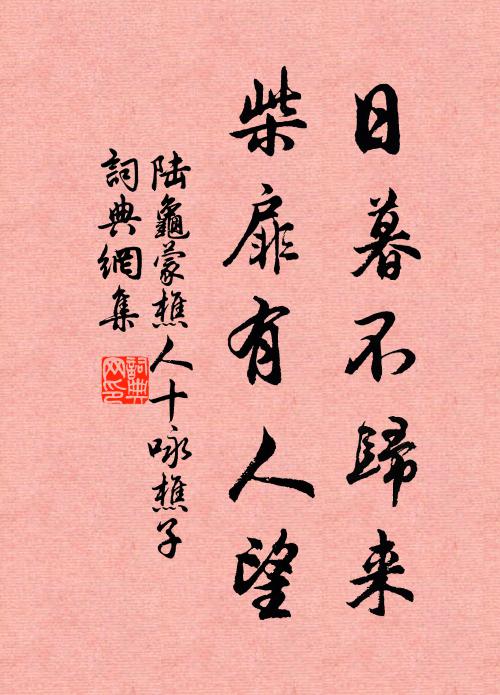 日暮不歸来
柴扉有人望
陆龜蒙樵人十咏樵子
詞典網集
詞典網印